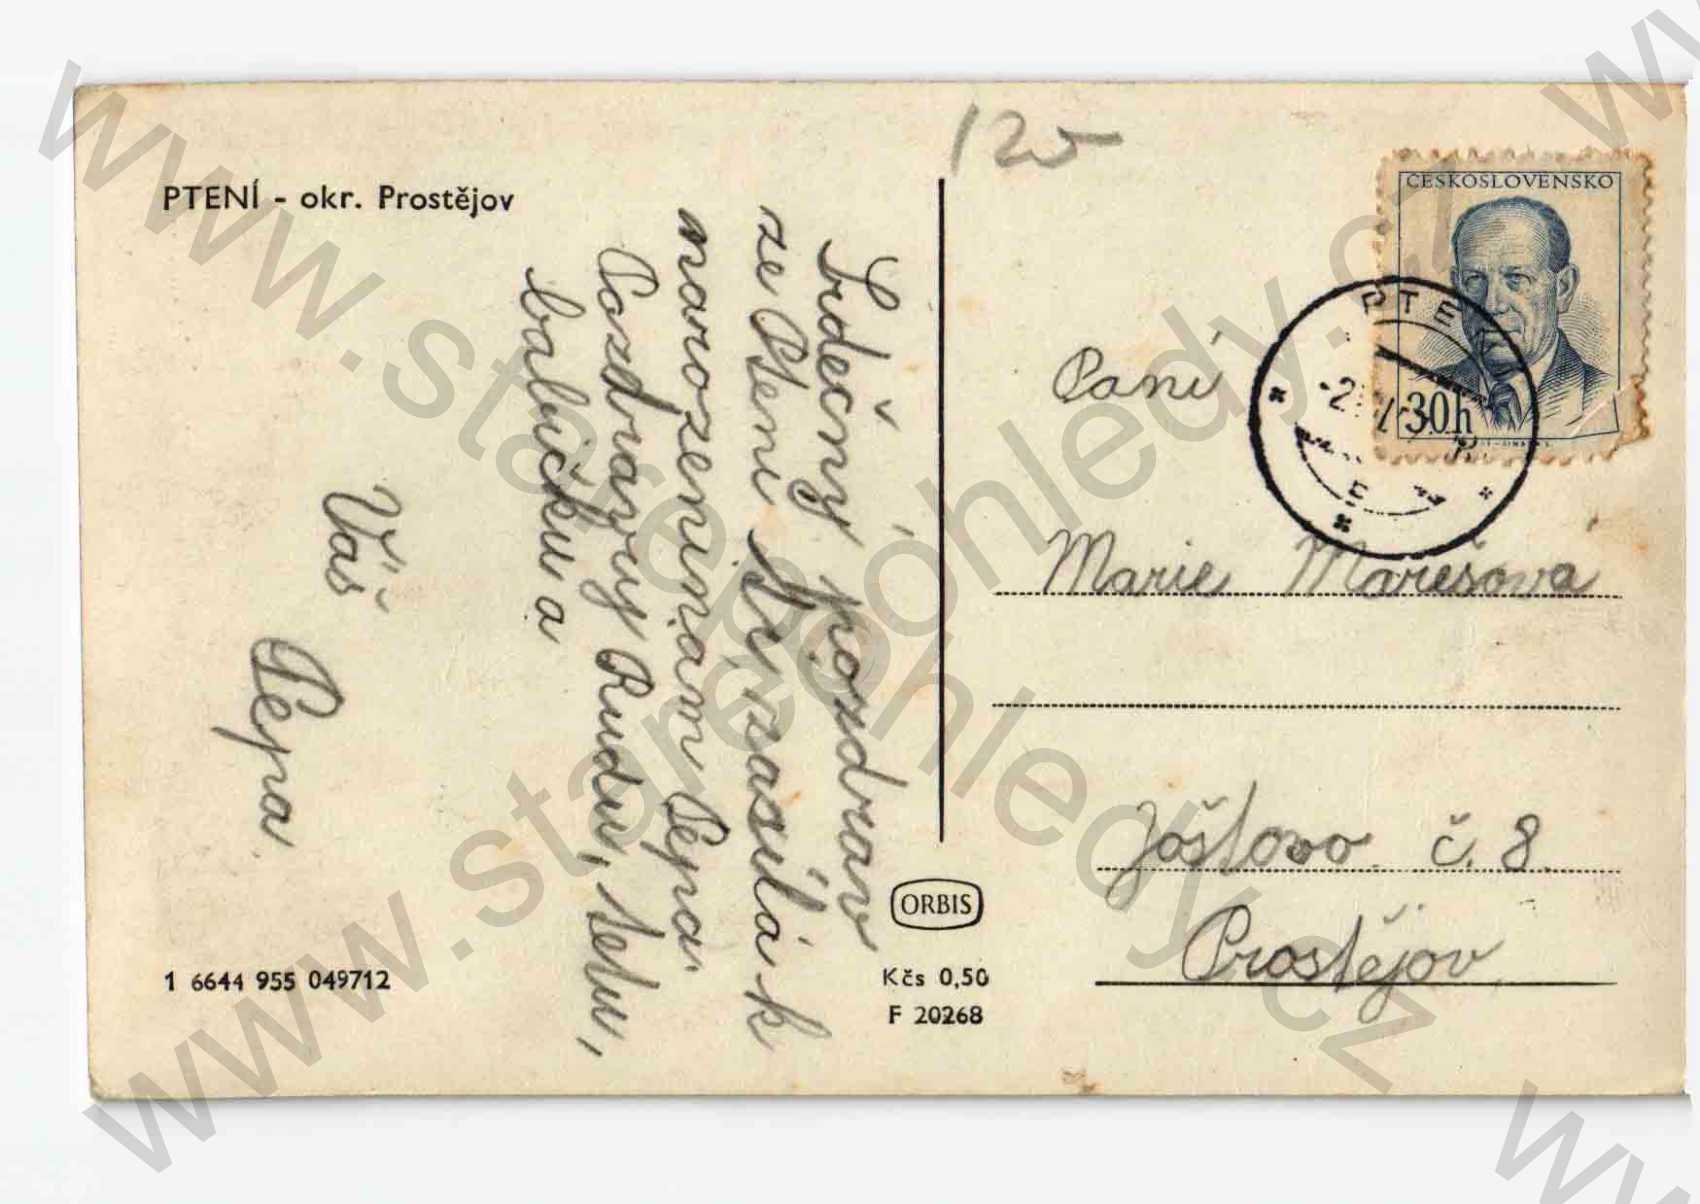 PTENÍ - okr. Prostějov
Srdečný pozdrav
ze Ptení Vám zasílá k
narozeninám Pepa.
Pozdravuj Rudu, tetu,
babičku a
Váš
Pepa
1 6644 955 049712
ORBIS
Kčs 0,50
F 20268
120
ČESKOSLOVENSKO
30h
PTE
Paní
Marie Marešová
Joštovo č. 8.
Prostějov
www.starepohledy.cz
www.starepohledy.cz